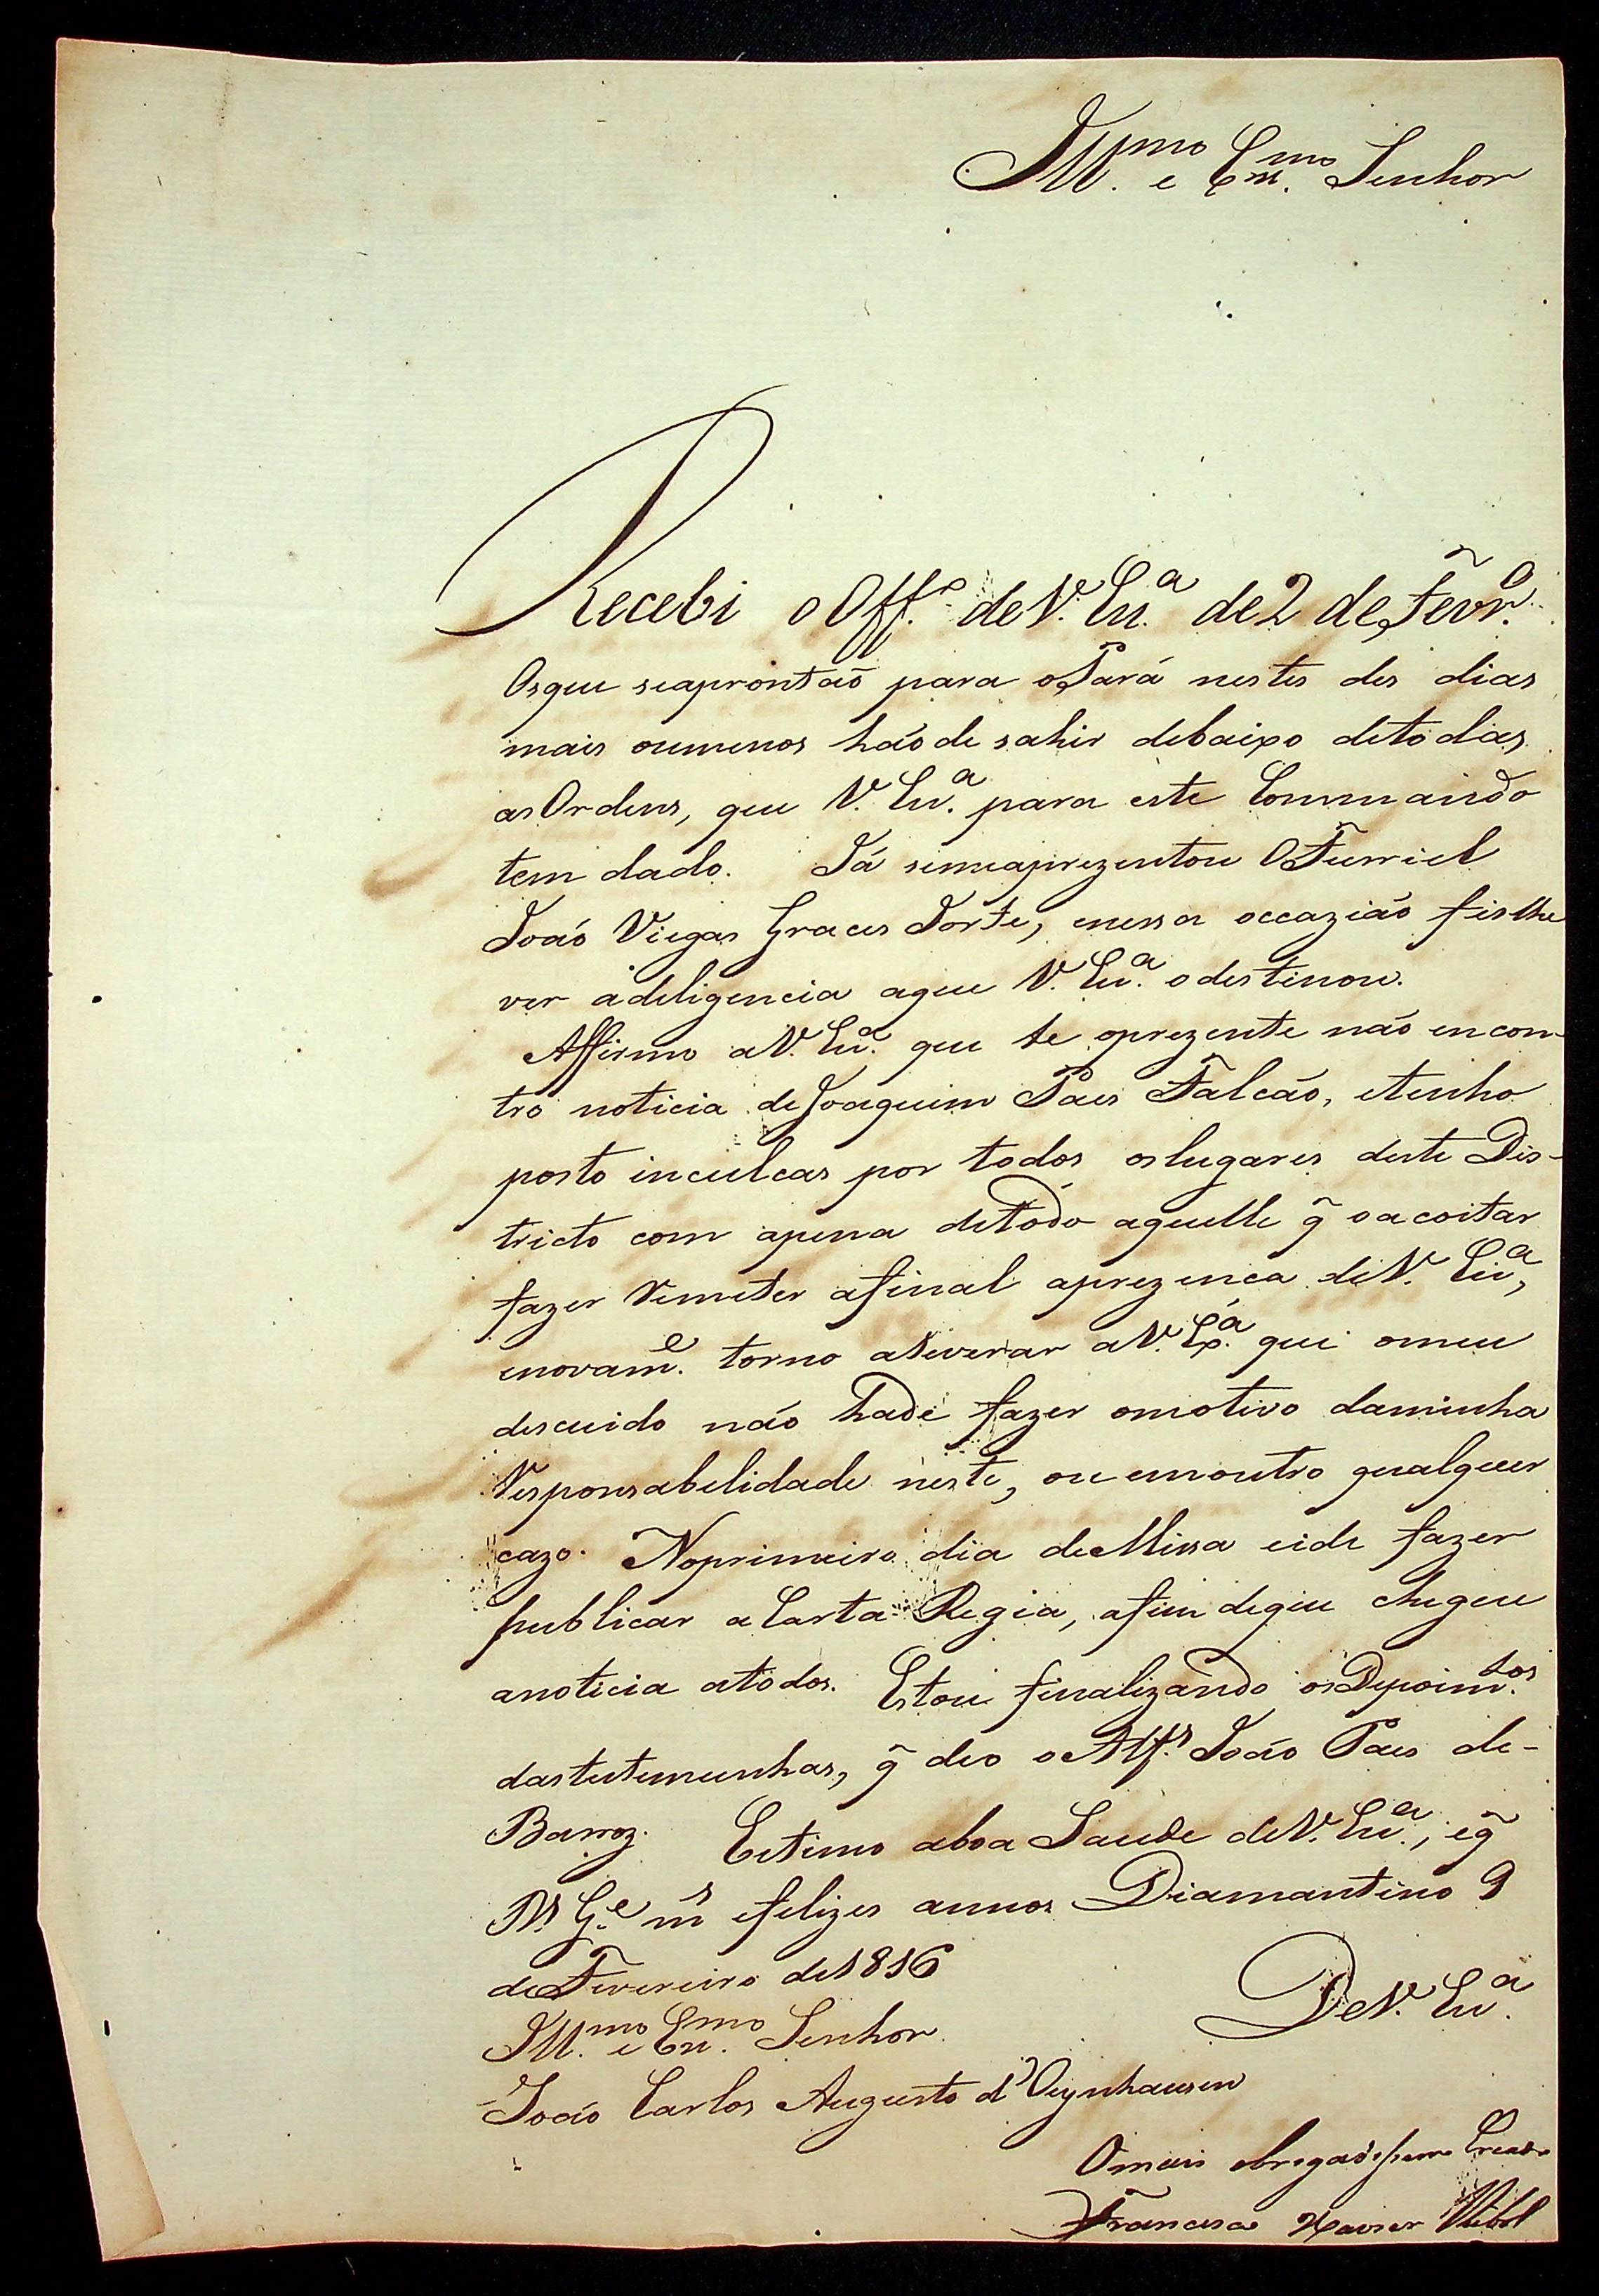 Ill.mo e Exm.mo Senhor
Recebi o Off.o de V. Ex.a de 2 de Fevr.o
Os que se aprontaõ para o Pará nestes des dias
mais ou menos hão de sahir debaixo de todas
as Ordens, que V. Ex.a para este Commando
tem dado. Já se me aprezentou O Furriel
João Viegas Graces Forte, e nessa occazião fis lhe
ver a deligencia a que V. Ex.a o destinou.
Affirmo a V. Ex.a que te o prezente não encon-
tro noticia de Joaquim Paes Falcão, e tenho
posto inculcas por todos os lugares deste Dis-
tricto com a pena de todo aquelle q̃ o acoitar
fazer Remeter a final a prezenca de V. Ex.a,
e novam.e torno aseverar a V. Ex.a que o meu
descuido não hade fazer o motivo da minha
Responsabelidade neste, ou em outro qualquer
cazo. No primeiro dia de Missa eide fazer
publicar a Carta Regia, a fim de que chegue
a noticia a todos. Estou finalizando os Depoim.tos
das testemunhas, q̃ deo o Alf.s João Paes de-
Barroz. Estimo a boa Saude de V. Ex.a, e q̃
D.s G.e m.s e felizes annos Diamantino 9
de Fevereiro de 1816
De V. Ex.a
Ill.mo e Ex.mo Senhor
João Carlos Augusto d'Oeynhausen
O mais obrigado Creado
Francisco Xavier